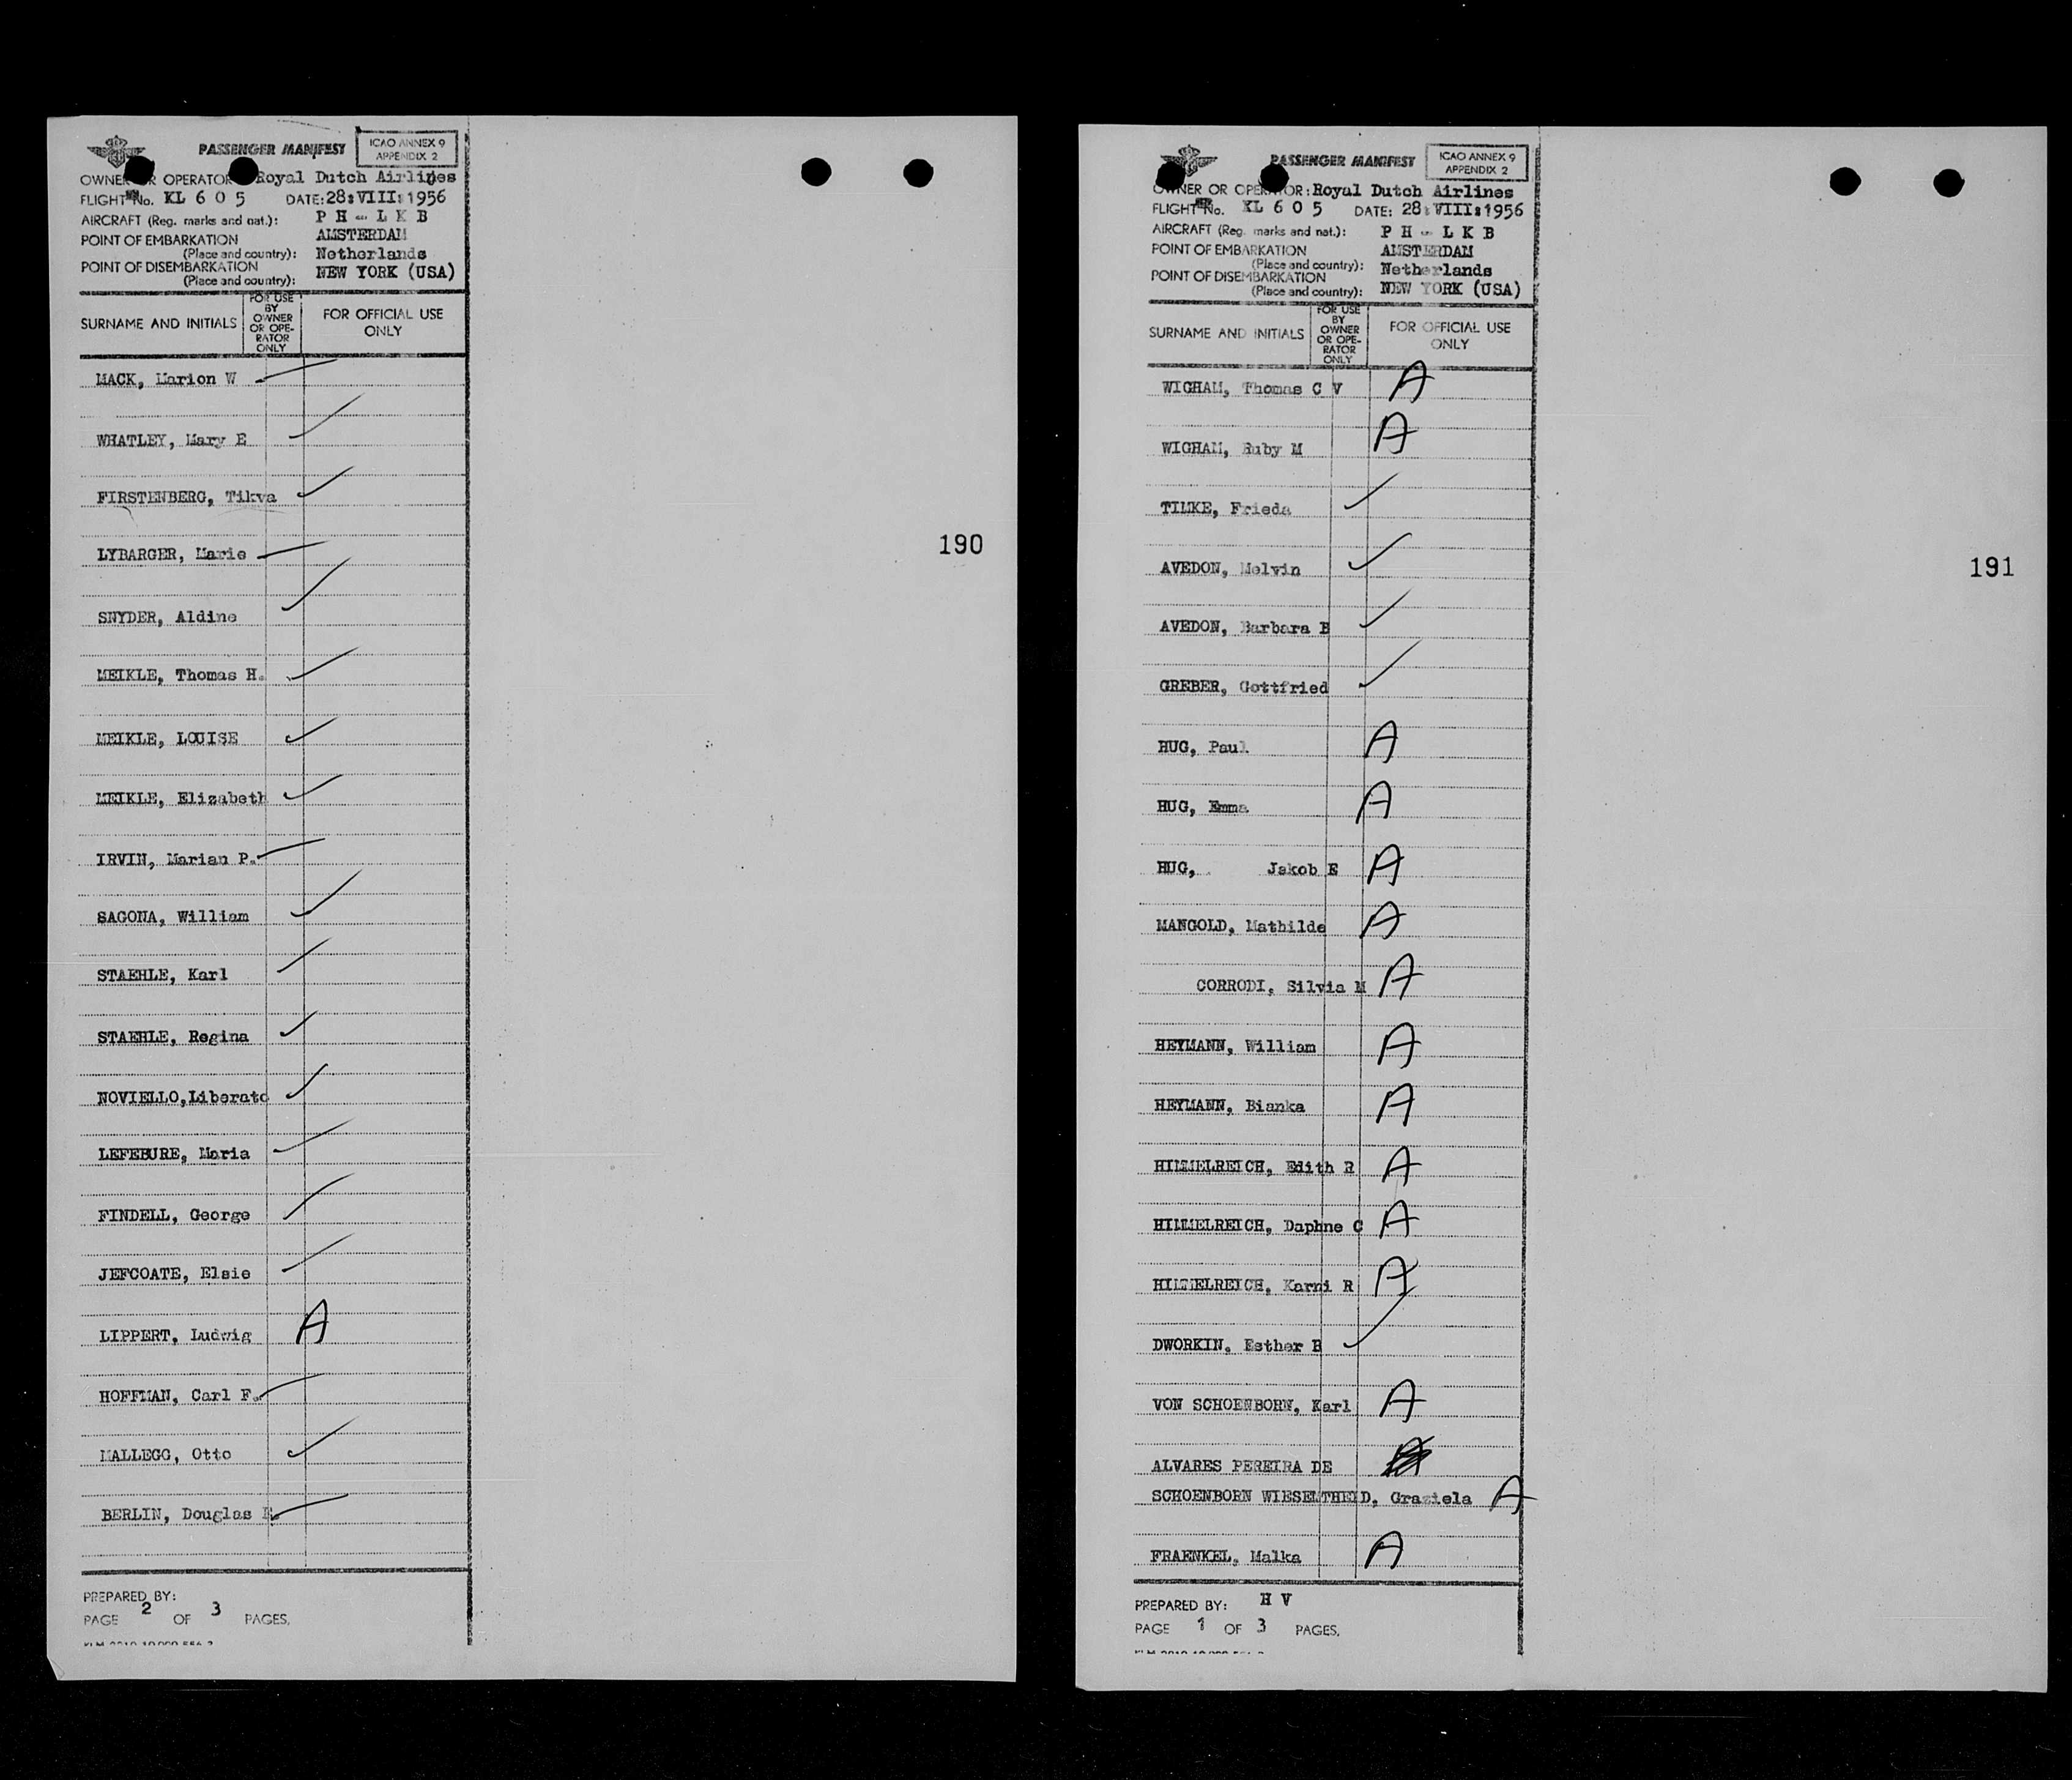 PASSENGER MANIFEST
ICAO ANNEX 9
APPENDIX 2
OWNER OR OPERATOR Royal Dutch Airlines
FLIGHT No. KL 6 0 5 DATE: 28:VIII:1956
AIRCRAFT (Reg. marks and nat.): P H - L K B
POINT OF EMBARKATION AMSTERDAM
(Place and country): Netherlands
POINT OF DISEMBARKATION
(Place and country): NEW YORK (USA)
SURNAME AND INITIALS
FOR USE
BY
OWNER
OR OPE-
RATOR
ONLY
FOR OFFICIAL USE
ONLY
MACK, Marion W
WHATLEY, Mary E
FIRSTENBERG, Tikva
LYBARGER, Marie
SNYDER, Aldine
MEIKLE, Thomas H.
MEIKLE, LOUISE
MEIKLE, Elizabeth
IRVIN, Marian P.
SAGONA, William
STAEHLE, Karl
STAEHLE, Regina
NOVIELLO,Liberato
LEFEBURE, Maria
FINDELL, George
JEFCOATE, Elsie
LIPPERT, Ludwig A
HOFFMAN, Carl F.
MALLEGG, Otto
BERLIN, Douglas
PREPARED BY:
PAGE 2 OF 3 PAGES.
190
PASSENGER MANIFEST
ICAO ANNEX 9
APPENDIX 2
OWNER OR OPERATOR: Royal Dutch Airlines
FLIGHT No. KL 6 0 5 DATE: 28:VIII:1956
AIRCRAFT (Reg. marks and nat.): P H - L K B
POINT OF EMBARKATION AMSTERDAM
(Place and country): Netherlands
POINT OF DISEMBARKATION
(Place and country): NEW YORK (USA)
SURNAME AND INITIALS
FOR USE
BY
OWNER
OR OPE-
RATOR
ONLY
FOR OFFICIAL USE
ONLY
WIGHAM, Thomas C V A
WIGHAM, Ruby M A
TILKE, Frieda
AVEDON, Melvin
AVEDON, Barbara B
GREBER, Gottfried
HUG, Paul A
HUG, Emma A
HUG, Jakob E A
MANGOLD, Mathilde A
CORRODI, Silvia M A
HEYMANN, William A
HEYMANN, Bianka A
HIMMELREICH, Edith R A
HIMMELREICH, Daphne C A
HIMMELREICH, Karni R A
DWORKIN, Esther B
VON SCHOENBORN, Karl A
ALVARES PEREIRA DE
SCHOENBORN WIESENTHEID, Graziela A
FRAENKEL, Malka A
PREPARED BY: H V
PAGE 1 OF 3 PAGES.
191